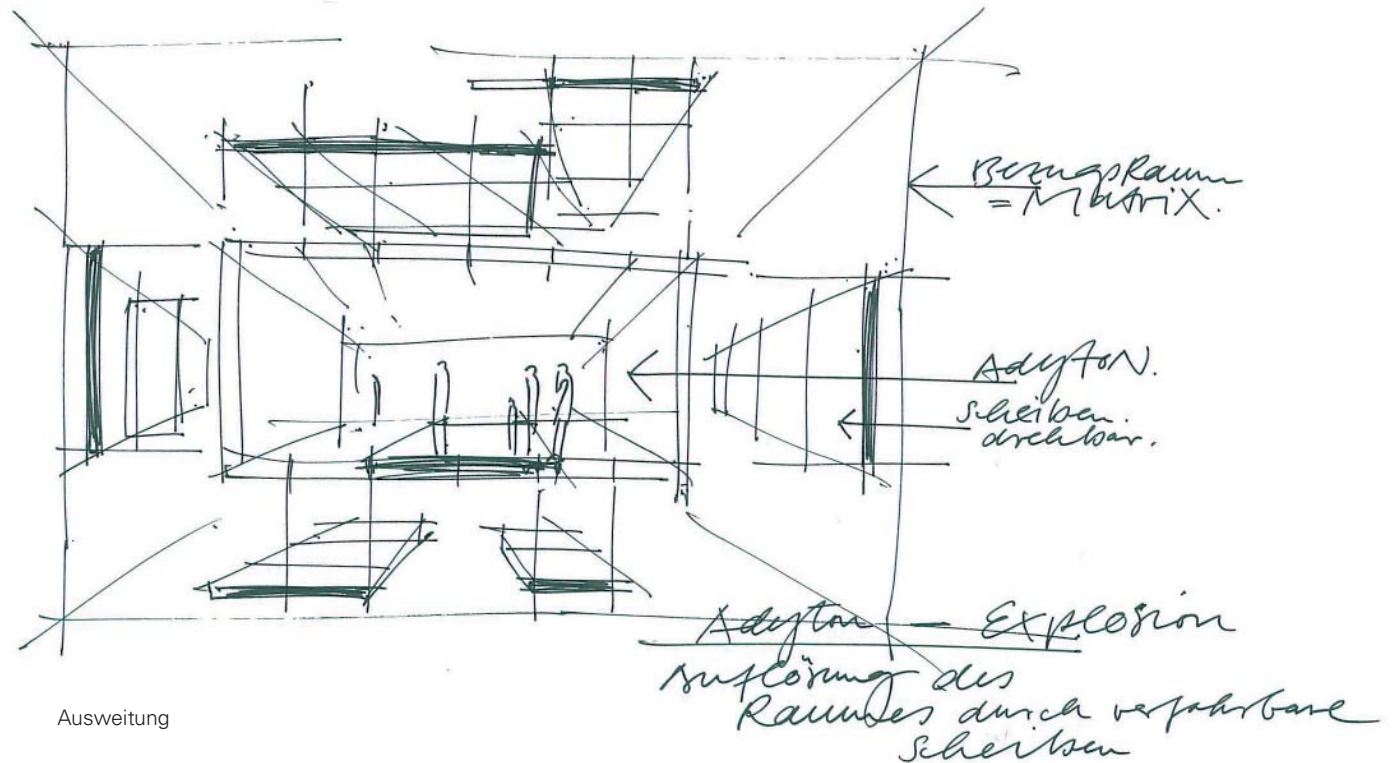 BezugsRaum
= MatriX.
AdytoN.
Scheiben.
drehbar.
Adyton — Explosion
Auflösung des
Raumes durch verfahrbare
Scheiben
Ausweitung